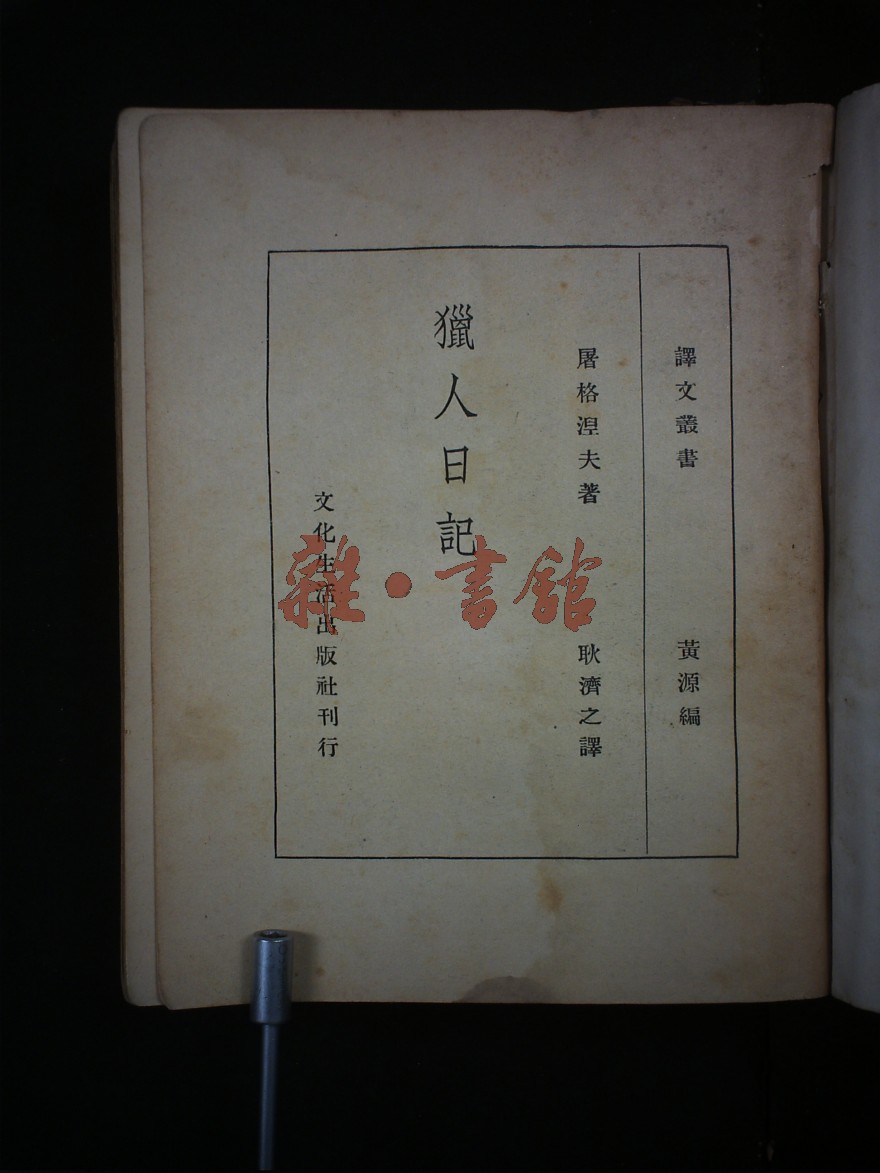 譯文叢書
黃源編
屠格涅夫著
耿濟之譯
獵人日記
文化生活出版社刊行
雜·書館